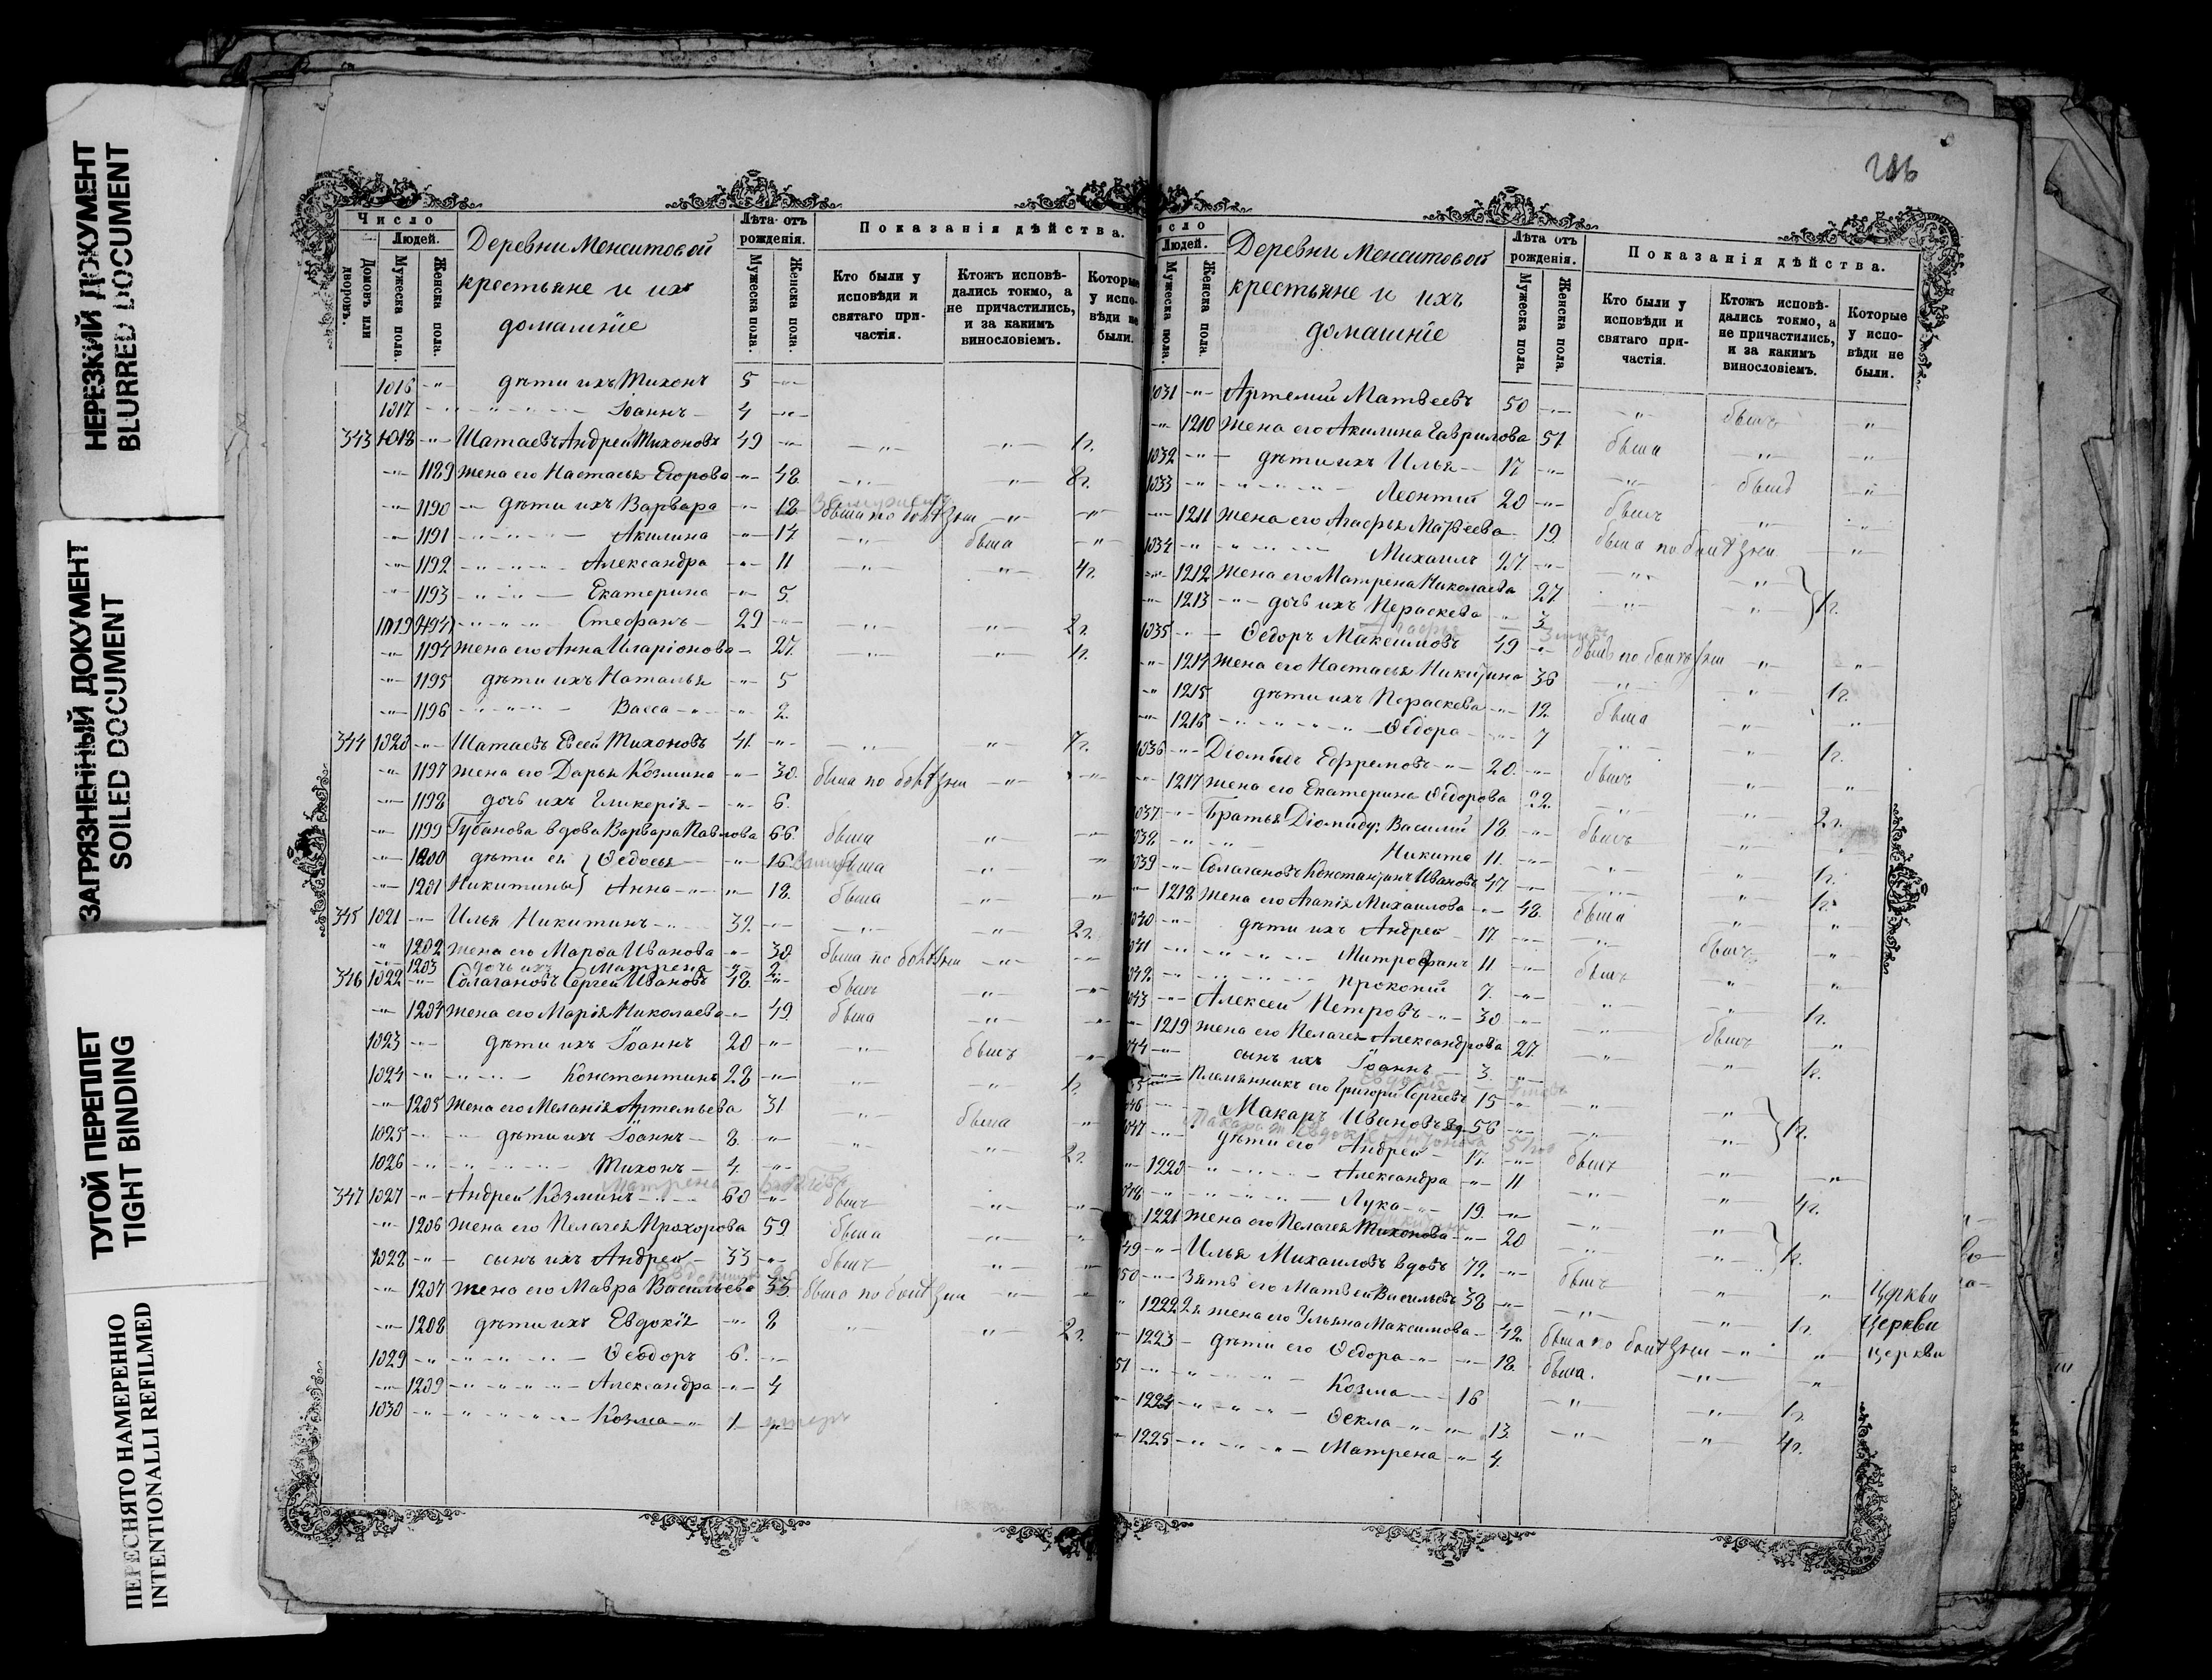 НЕРЕЗКИЙ ДОКУМЕНТ
BLURRED DOCUMENT
ЗАГРЯЗНЕННЫЙ ДОКУМЕНТ
SOILED DOCUMENT
ТУГОЙ ПЕРЕПЛЕТ
TIGHT BINDING
ПЕРЕСНЯТО НАМЕРЕННО
INTENTIONALLI REFILMED
Число
Людей.
Домовъ или дворовъ.
Мужеска пола.
Женска пола.
Деревни Менситовой
крестьяне и ихъ
домашніе
Лѣта отъ рожденія.
Мужеска пола.
Женска пола.
Показанія дѣйства.
Кто были у исповѣди и святаго при-частія.
Ктожъ исповѣ-дались токмо, а не причастились, и за какимъ винословіемъ.
Которые у испо-вѣди не были.
1016 -"- дѣти ихъ Тихонъ 5 -"-
1017 Іоаннъ 4 -"-
343 1018 -"- Шатаевъ Андрей Тихоновъ 49 -"- -"- -"- 1г.
-"- 1189 жена его Настасья Егорова -"- 48. -"- -"- 8г.
-"- 1190 дѣти ихъ Варвара -"- 18 была по болѣзни -"- -"-
-"- 1191 Акилина -"- 14 -"- была -"-
-"- 1192 Александра -"- 11 -"- -"- 4г.
-"- 1193 Екатерина -"- 5.
1019 Стефанъ 29 -"- -"- -"- 2г.
-"- 1194 жена его Анна Иларіонова 27. -"- -"- 1г.
-"- 1195 дѣти ихъ Наталья -"- 5
-"- 1196 Васса -"- 2.
344 1020 -"- Шатаевъ Евсей Тихоновъ 41. -"- -"- -"- 7г.
-"- 1197 жена его Дарья Козмина -"- 30. была по болѣзни -"- -"-
-"- 1198 дочь ихъ Гликерія -"- 6.
-"- 1199 Губанова вдова Варвара Павлова 66. была -"- -"-
-"- 1200 дѣти ея Ѳедосья -"- 16. была -"- -"-
-"- 1201 Никитины Анна -"- 18. была -"- -"-
345 1021 -"- Илья Никитинъ 32. -"- -"- -"- 2г.
-"- 1202 жена его Марѳа Иванова -"- 30. была по болѣзни -"- -"-
-"- 1203 дочь ихъ Матрена -"- 2.
346 1022 -"- Солагановъ Сергей Ивановъ 48. -"- былъ -"- -"-
-"- 1204 жена его Марія Николаева -"- 49. была -"- -"-
1023 -"- дѣти ихъ Іоаннъ 20 -"- -"- былъ -"-
1024 -"- Константинъ 28 -"- -"- -"- 1г.
-"- 1205 жена его Меланія Артемьева 31. -"- была -"-
1025 дѣти ихъ Іоаннъ 8. -"- -"- -"- 2г.
1026 Тихонъ 4. -"-
Матрена
347 1027 -"- Андрей Козминъ 60 -"- былъ -"- -"-
-"- 1206 жена его Пелагея Прохорова 59. была -"- -"-
1028 -"- сынъ ихъ Андрей 33 -"- былъ -"- -"-
-"- 1207 жена его Мавра Васильева 33. была по болѣзни -"- -"-
-"- 1208 дѣти ихъ Евдокія -"- 8 -"- -"- 2г.
1029 Ѳеодоръ 6. -"-
-"- 1209 Александра -"- 4
1030 Козма 1 -"- умеръ
Число
Людей.
Мужеска пола.
Женска пола.
Деревни Менситовой
крестьяне и ихъ
домашніе
Лѣта отъ рожденія.
Мужеска пола.
Женска пола.
Показанія дѣйства.
Кто были у исповѣди и святаго при-частія.
Ктожъ исповѣ-дались токмо, а не причастились, и за какимъ винословіемъ.
Которые у испо-вѣди не были.
1031 -"- Артемій Матвеевъ 50 -"- -"- былъ -"-
-"- 1210 жена его Акилина Гаврилова 51. была -"- -"-
1032 -"- дѣти ихъ Илья 17. -"- -"- былъ -"-
1033 -"- Леонтій 20 -"- былъ -"- -"-
-"- 1211 жена его Агафья Матвеева 19. была по болѣзни -"-
1034 -"- Михаилъ 27 -"- -"- -"-
-"- 1212 жена его Матрена Николаева 27. -"- -"- 1г.
-"- 1213 дочь ихъ Пераскева -"- 3
1035 -"- Ѳедоръ Максимовъ 49 -"- былъ по болѣзни -"- -"-
-"- 1214 жена его Настасья Никитина 36 -"- -"- 1г.
-"- 1215 дѣти ихъ Пераскева -"- 12. была -"- -"-
-"- 1216 Ѳедора -"- 7 -"- -"- 1г.
1036 -"- Діомидъ Ефремовъ 20. -"- былъ -"- -"-
-"- 1217 жена его Екатерина Ѳедорова 22. -"- -"- 2г.
1037 -"- Братья Діомиду: Василій 18. -"- былъ -"- -"-
1038 Никита 11. -"- -"- -"- 1г.
1039 -"- Солагановъ Константинъ Ивановъ 47 -"- -"- -"- 1г.
-"- 1218 жена его Агапія Михаилова -"- 48. была -"- -"-
1040 -"- дѣти ихъ Андрей 17. -"- -"- былъ -"-
1041 Митрофанъ 11 -"- былъ -"- -"-
1042 Прокопій 7. -"- -"- -"- 1г.
1043 -"- Алексей Петровъ 30 -"- -"- былъ -"-
-"- 1219 жена его Пелагея Александрова 27. -"- -"- 1г.
1044 -"- сынъ ихъ Іоаннъ 3. -"-
Племянникъ его Григорій Сергеевъ 15 -"- -"- -"-
1046 Макаръ Ивановъ вд. 56 -"- -"- -"- 1г.
1047 -"- дѣти его Андрей 17. -"- былъ -"- -"-
-"- 1220 Александра -"- 11 -"- -"- 4г.
1048 Лука 19. -"- -"- -"-
-"- 1221 жена его Пелагея Тихонова -"- 20 -"- -"- 1г.
1049 -"- Илья Михаиловъ вдовъ 72. -"- былъ -"- -"-
1050 -"- Зять его Матвей Васильевъ 38 -"- -"- -"- 1г.
-"- 1222 2я жена его Ульяна Максимова 42. была по болѣзни -"- -"-
-"- 1223 дѣти его Ѳедора -"- 18. была. -"- -"-
1051 Козма 16 -"- -"- 1г.
-"- 1224 Ѳекла -"- 13. -"- -"- 4г.
-"- 1225 Матрена -"- 4.
Церкви
Церкви
церкви